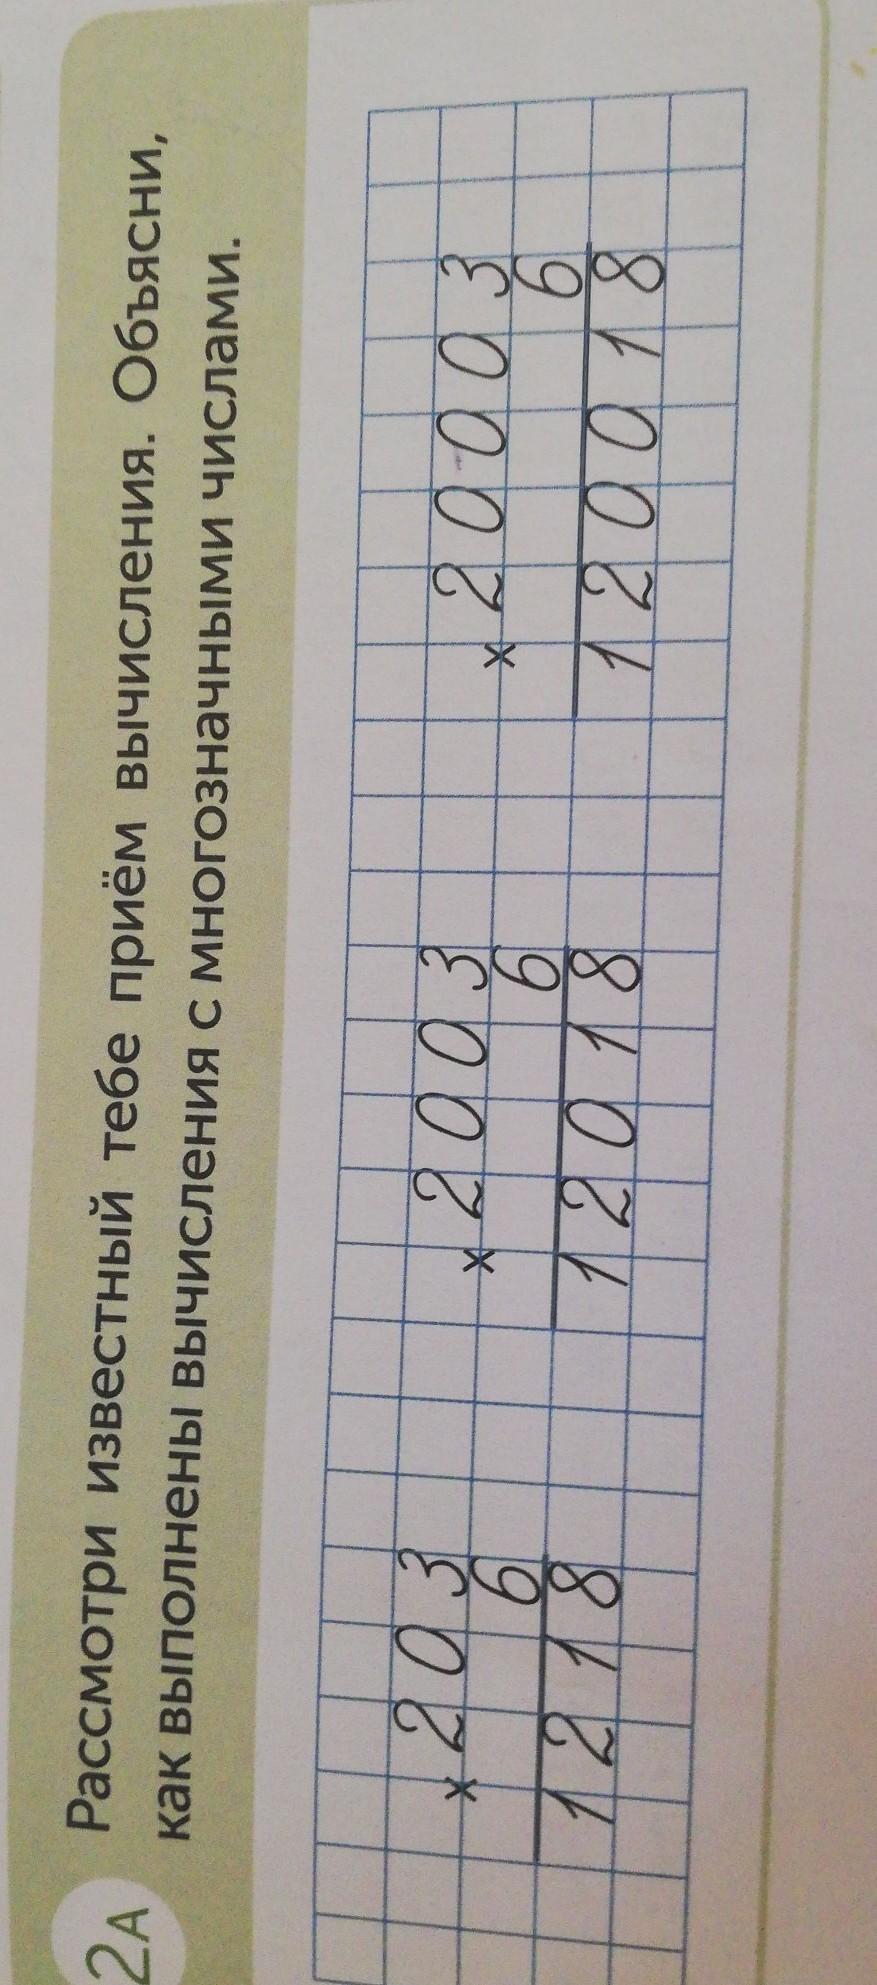 2А Рассмотри известный тебе приём вычисления. Объясни,
как выполнены вычисления с многозначными числами.
× 203 × 2003 × 20003
6 6 6
1218 12018 120018